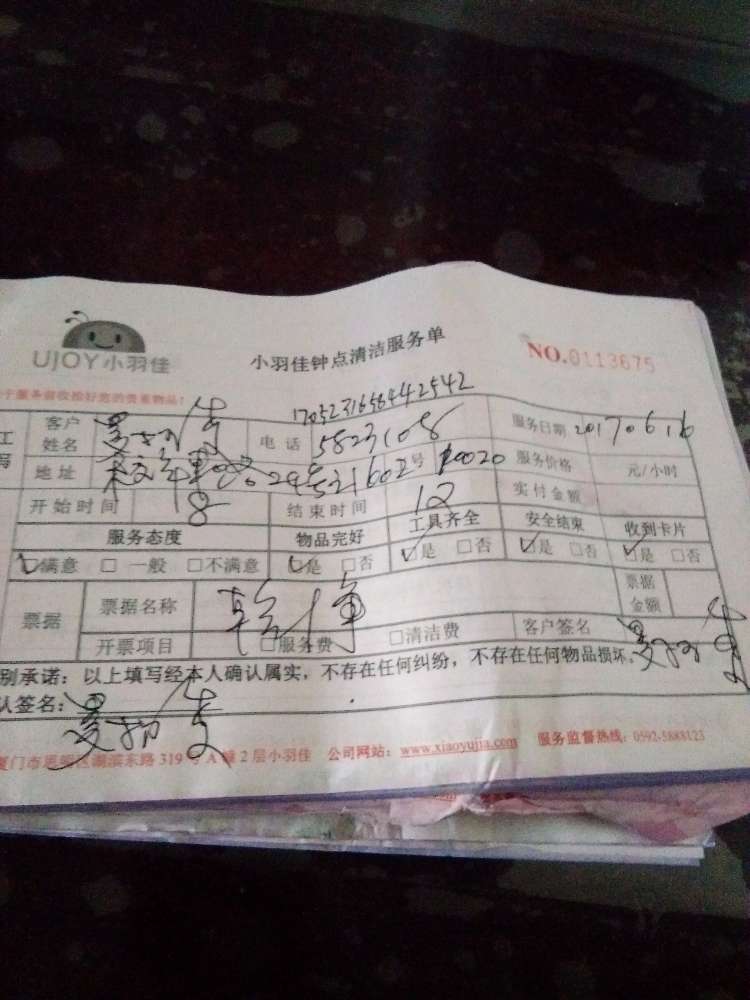 UJOY小羽佳 小羽佳钟点清洁服务单 NO.0113675
个服务前收拾好您的贵重物品!
1705231658442542
客户姓名 电话 5823108 服务日期 20170616
地址 号 服务价格 元/小时
开始时间 8 结束时间 12 实付金额
服务态度 物品完好 工具齐全 安全结束 收到卡片
☑满意 □一般 □不满意 ☑是 □否 ☑是 □否 ☑是 □否 ☑是 □否
票据 票据名称 票据金额
开票项目 □服务费 □清洁费 客户签名
别承诺:以上填写经本人确认属实,不存在任何纠纷,不存在任何物品损坏。
认签名:
厦门市思明区湖滨东路319号A幢2层小羽佳 公司网站:www.xiaoyujia.com 服务监督热线:0592-5888123